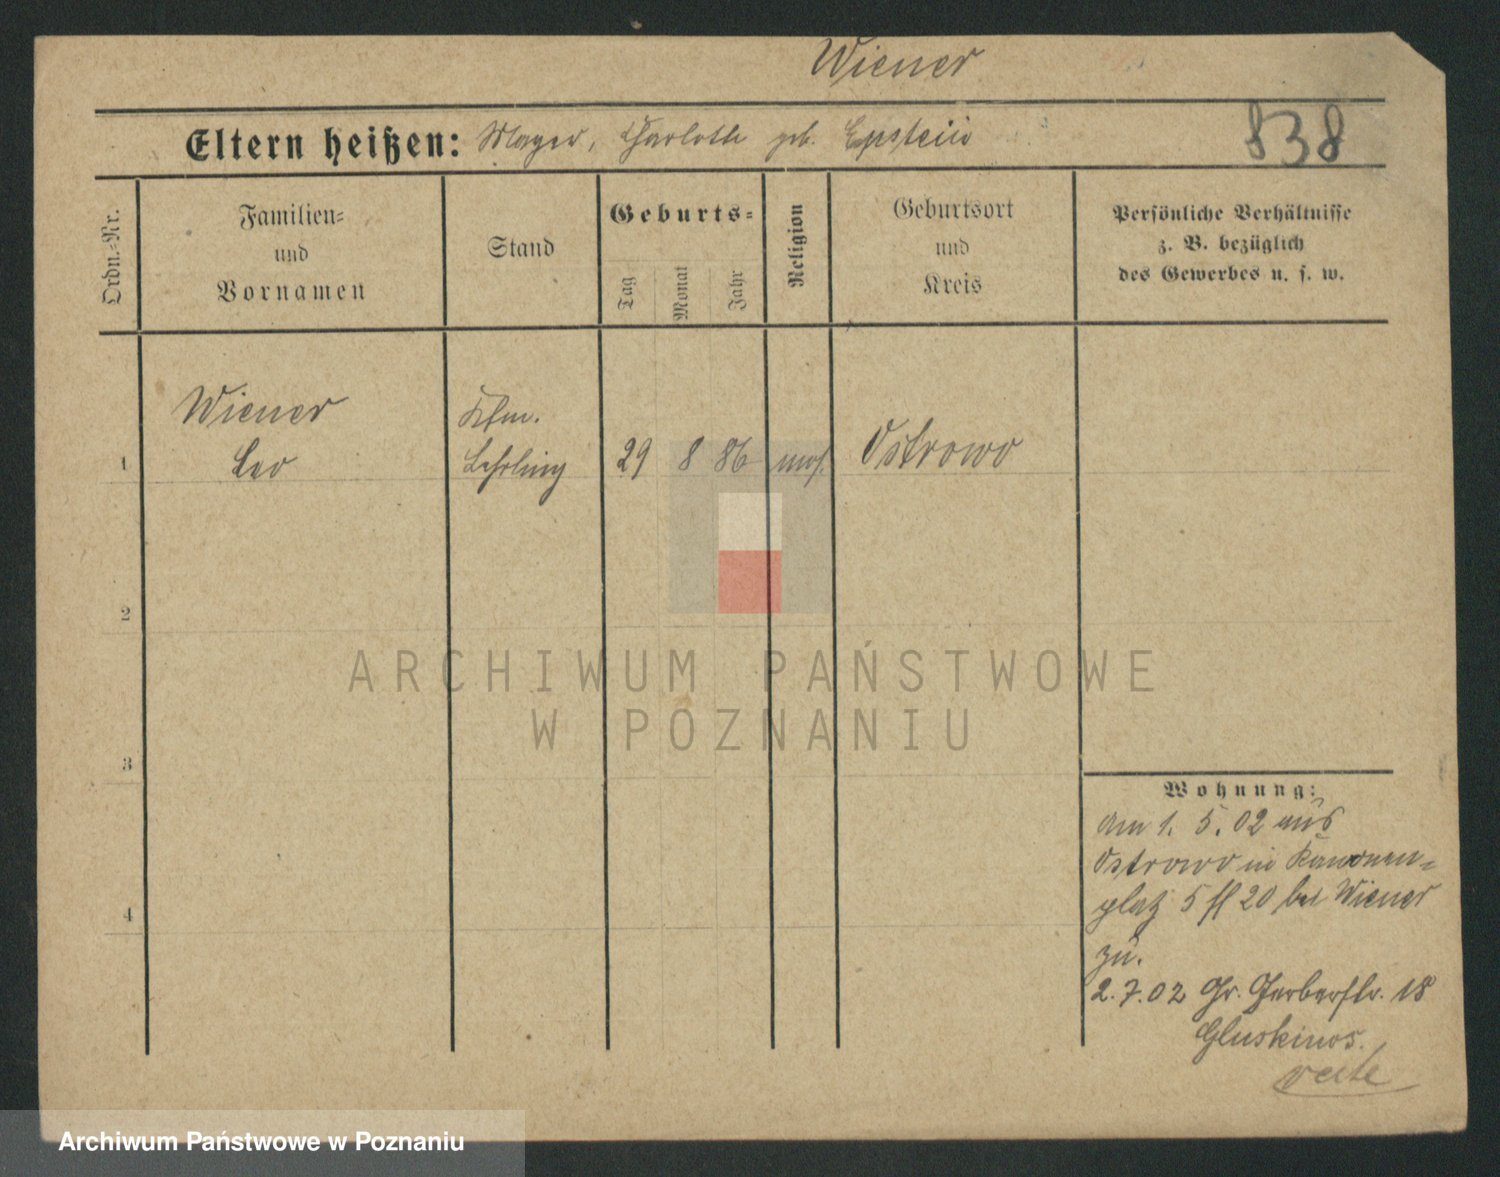 Wiener
838
Eltern heißen: Mayer, Charlotte geb. Epstein
Ordn.-Nr.
Familien-
und
Vornamen
Stand
Geburts-
Tag
Monat
Jahr
Religion
Geburtsort
und
Kreis
Persönliche Verhältnisse
z. B. bezüglich
des Gewerbes u. s. w.
Wiener Kfm.
1 Leo Lehrling 29 8 86 mos. Ostrowo
2
3
4
Wohnung:
am 1. 5. 02 aus
Ostrowo in Kanonen-
platz 5 II 20 bei Wiener
zu.
2. 7. 02 Gr. Gerberstr. 18
Gluskinos.
verte
ARCHIWUM PAŃSTWOWE
W POZNANIU
Archiwum Państwowe w Poznaniu